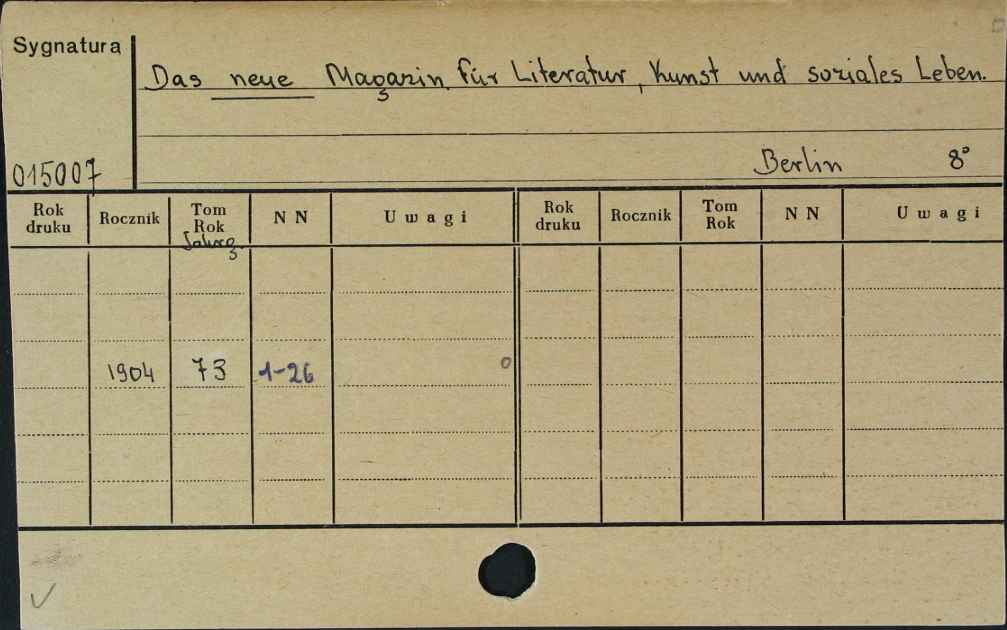 Sygnatura
Das neue Magazin für Literatur, Kunst und soziales Leben.
015007
Berlin 8°
Rok druku Rocznik Tom Rok N N Uwagi Rok druku Rocznik Tom Rok N N Uwagi
Jahrg.
1904 73 1-26 0